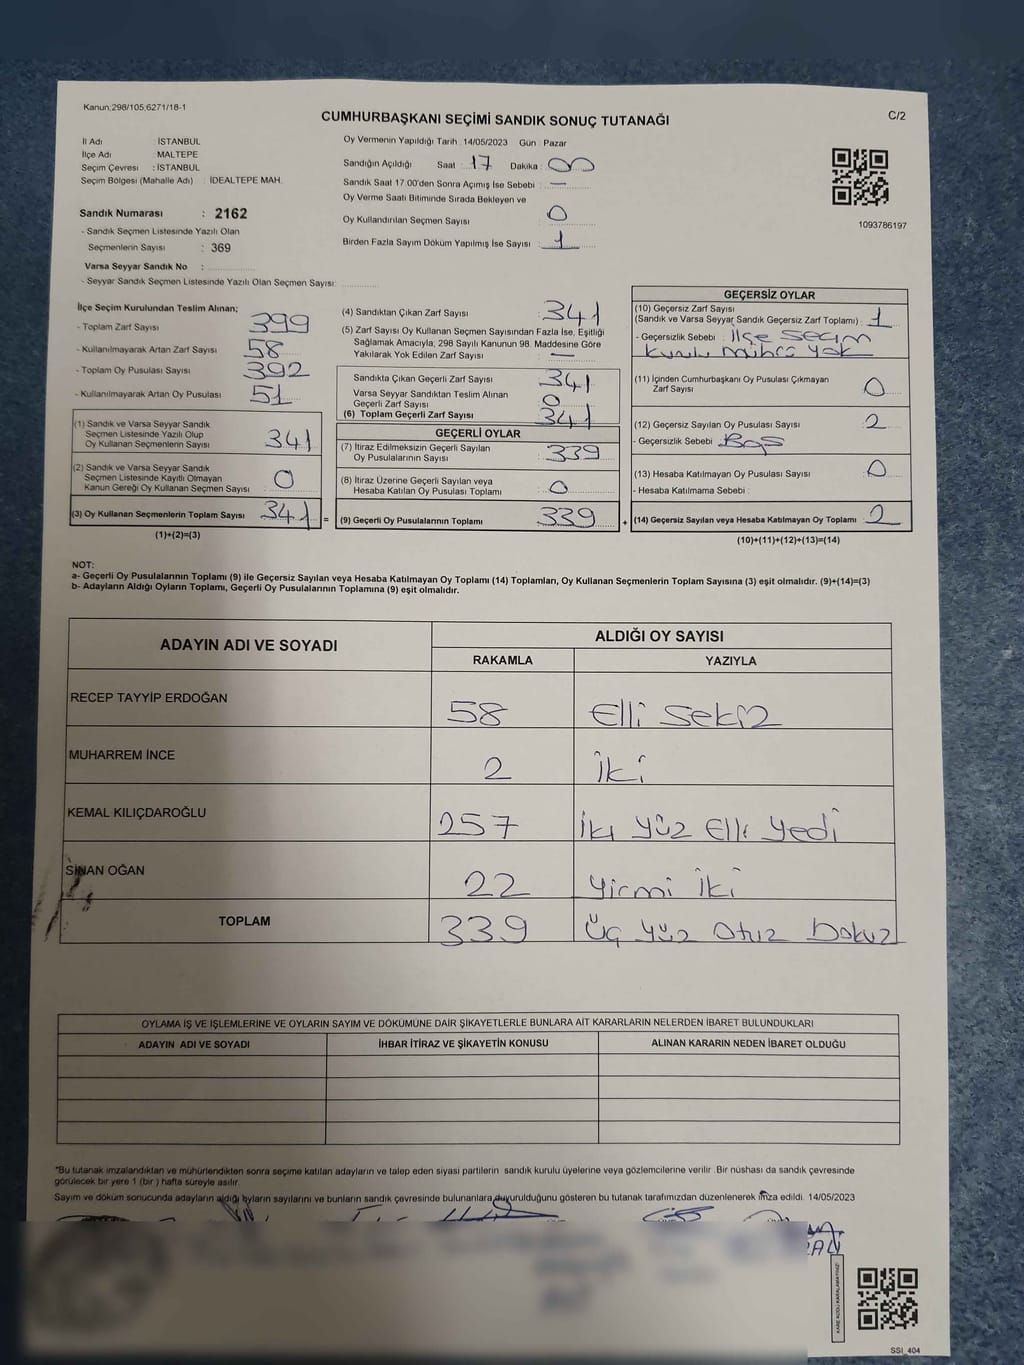 Kanun;298/105,6271/18-1
C/2
CUMHURBAŞKANI SEÇİMİ SANDIK SONUÇ TUTANAĞI
İl Adı : İSTANBUL
İlçe Adı : MALTEPE
Seçim Çevresi : İSTANBUL
Seçim Bölgesi (Mahalle Adı) : İDEALTEPE MAH.
Sandık Numarası : 2162
- Sandık Seçmen Listesinde Yazılı Olan
Seçmenlerin Sayısı : 369
Varsa Seyyar Sandık No :
- Seyyar Sandık Seçmen Listesinde Yazılı Olan Seçmen Sayısı:
Oy Vermenin Yapıldığı Tarih :14/05/2023 Gün : Pazar
Sandığın Açıldığı Saat : 17 Dakika : 00
Sandık Saat 17.00'den Sonra Açımış İse Sebebi : —
Oy Verme Saati Bitiminde Sırada Bekleyen ve
Oy Kullandırılan Seçmen Sayısı : 0
Birden Fazla Sayım Döküm Yapılmış İse Sayısı : 1
1093786197
İlçe Seçim Kurulundan Teslim Alınan;
- Toplam Zarf Sayısı : 399
- Kullanılmayarak Artan Zarf Sayısı : 58
- Toplam Oy Pusulası Sayısı : 392
- Kullanılmayarak Artan Oy Pusulası : 51
(1) Sandık ve Varsa Seyyar Sandık
Seçmen Listesinde Yazılı Olup
Oy Kullanan Seçmenlerin Sayısı : 341
(2) Sandık ve Varsa Seyyar Sandık
Seçmen Listesinde Kayıtlı Olmayan
Kanun Gereği Oy Kullanan Seçmen Sayısı : 0
(3) Oy Kullanan Seçmenlerin Toplam Sayısı : 341 =
(1)+(2)=(3)
(4) Sandıktan Çıkan Zarf Sayısı : 341
(5) Zarf Sayısı Oy Kullanan Seçmen Sayısından Fazla İse, Eşitliği
Sağlamak Amacıyla, 298 Sayılı Kanunun 98. Maddesine Göre
Yakılarak Yok Edilen Zarf Sayısı : —
Sandıkta Çıkan Geçerli Zarf Sayısı : 341
Varsa Seyyar Sandıktan Teslim Alınan
Geçerli Zarf Sayısı : 0
(6) Toplam Geçerli Zarf Sayısı : 341
GEÇERLİ OYLAR
(7) İtiraz Edilmeksizin Geçerli Sayılan
Oy Pusulalarının Sayısı : 339
(8) İtiraz Üzerine Geçerli Sayılan veya
Hesaba Katılan Oy Pusulası Toplamı : 0
(9) Geçerli Oy Pusulalarının Toplamı : 339 +
GEÇERSİZ OYLAR
(10) Geçersiz Zarf Sayısı
(Sandık ve Varsa Seyyar Sandık Geçersiz Zarf Toplamı) : 1
- Geçersizlik Sebebi : İlçe Seçim
Kurulu Mührü Yok
(11) İçinden Cumhurbaşkanı Oy Pusulası Çıkmayan
Zarf Sayısı : 0
(12) Geçersiz Sayılan Oy Pusulası Sayısı : 2
- Geçersizlik Sebebi : Boş
(13) Hesaba Katılmayan Oy Pusulası Sayısı : 0
- Hesaba Katılmama Sebebi :
(14) Geçersiz Sayılan veya Hesaba Katılmayan Oy Toplamı : 2
(10)+(11)+(12)+(13)=(14)
NOT:
a- Geçerli Oy Pusulalarının Toplamı (9) ile Geçersiz Sayılan veya Hesaba Katılmayan Oy Toplamı (14) Toplamları, Oy Kullanan Seçmenlerin Toplam Sayısına (3) eşit olmalıdır. (9)+(14)=(3)
b- Adayların Aldığı Oyların Toplamı, Geçerli Oy Pusulalarının Toplamına (9) eşit olmalıdır.
ADAYIN ADI VE SOYADI ALDIĞI OY SAYISI
RAKAMLA YAZIYLA
RECEP TAYYİP ERDOĞAN 58 Elli Sekiz
MUHARREM İNCE 2 İki
KEMAL KILIÇDAROĞLU 257 İki Yüz Elli Yedi
SİNAN OĞAN 22 Yirmi İki
TOPLAM 339 Üç Yüz Otuz Dokuz
OYLAMA İŞ VE İŞLEMLERİNE VE OYLARIN SAYIM VE DÖKÜMÜNE DAİR ŞİKAYETLERLE BUNLARA AİT KARARLARIN NELERDEN İBARET BULUNDUKLARI
ADAYIN ADI VE SOYADI İHBAR İTİRAZ VE ŞİKAYETİN KONUSU ALINAN KARARIN NEDEN İBARET OLDUĞU
*Bu tutanak imzalandıktan ve mühürlendikten sonra seçime katılan adayların ve talep eden siyasi partilerin sandık kurulu üyelerine veya gözlemcilerine verilir .Bir nüshası da sandık çevresinde
görülecek bir yere 1 (bir ) hafta süreyle asılır.
Sayım ve döküm sonucunda adayların aldığı oyların sayılarını ve bunların sandık çevresinde bulunanlara duyurulduğunu gösteren bu tutanak tarafımızdan düzenlenerek imza edildi. 14/05/2023
KARE KODU KARALAMAYINIZ!
SSI_404